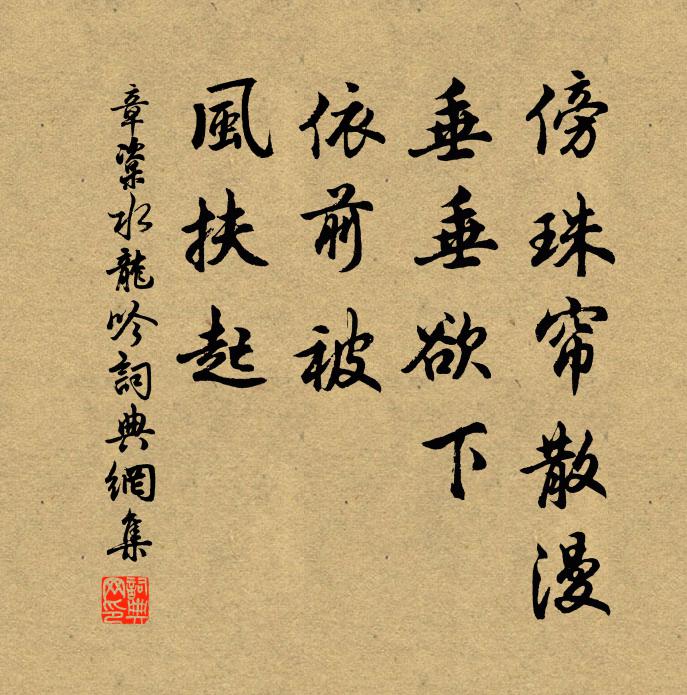 傍珠帘散漫
垂垂欲下
依前被
風扶起
章楶水龍吟詞典網集
詞典网印